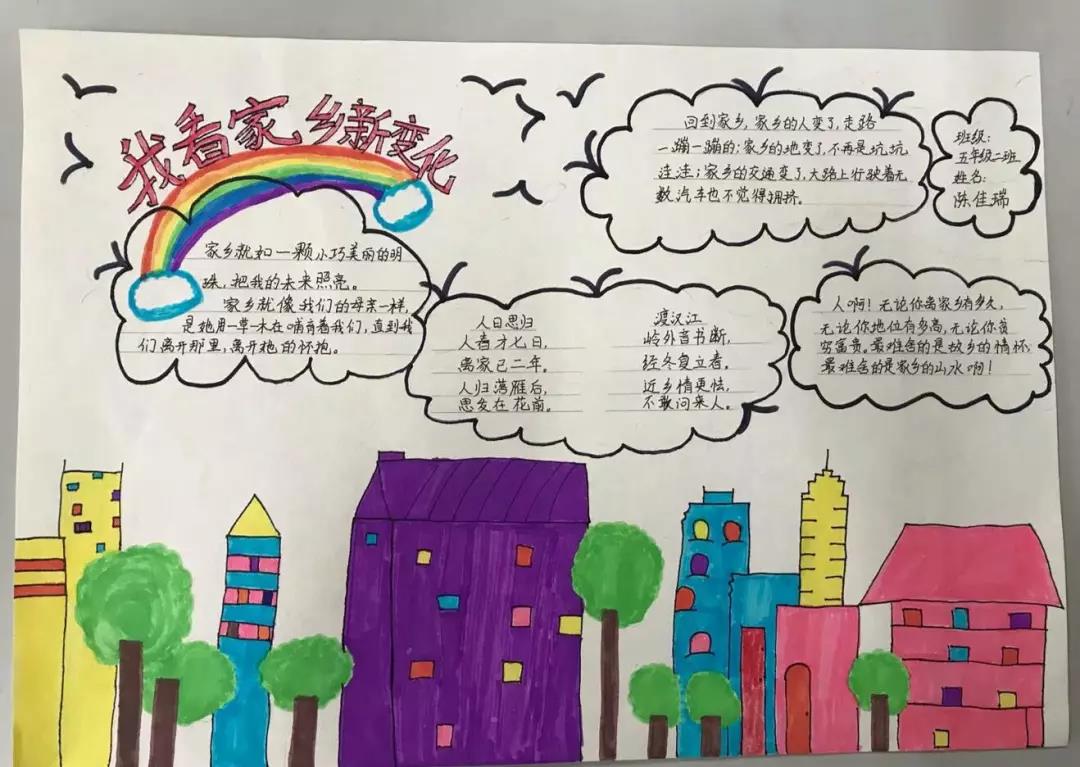 我看家乡新变化
家乡就如一颗小巧美丽的明
珠，把我的未来照亮。
家乡就像我们的母亲一样，
是她用一草一木在哺育着我们，直到我
们离开那里，离开她的怀抱。
人日思归
人春才七日，
离家已二年。
人归落雁后，
思发在花前。
渡汉江
岭外音书断，
经冬复立春。
近乡情更怯，
不敢问来人。
回到家乡，家乡的人变了，走路
一蹦一蹦的；家乡的地变了，不再是坑坑
洼洼；家乡的交通变了，大路上行驶着无
数汽车也不觉得拥挤。
班级：
五年级二班
姓名：
陈佳瑞
人啊！无论你离家乡有多久，
无论你地位有多高，无论你贫
穷富贵。最难舍的是故乡的情怀
最难舍的是家乡的山水啊！